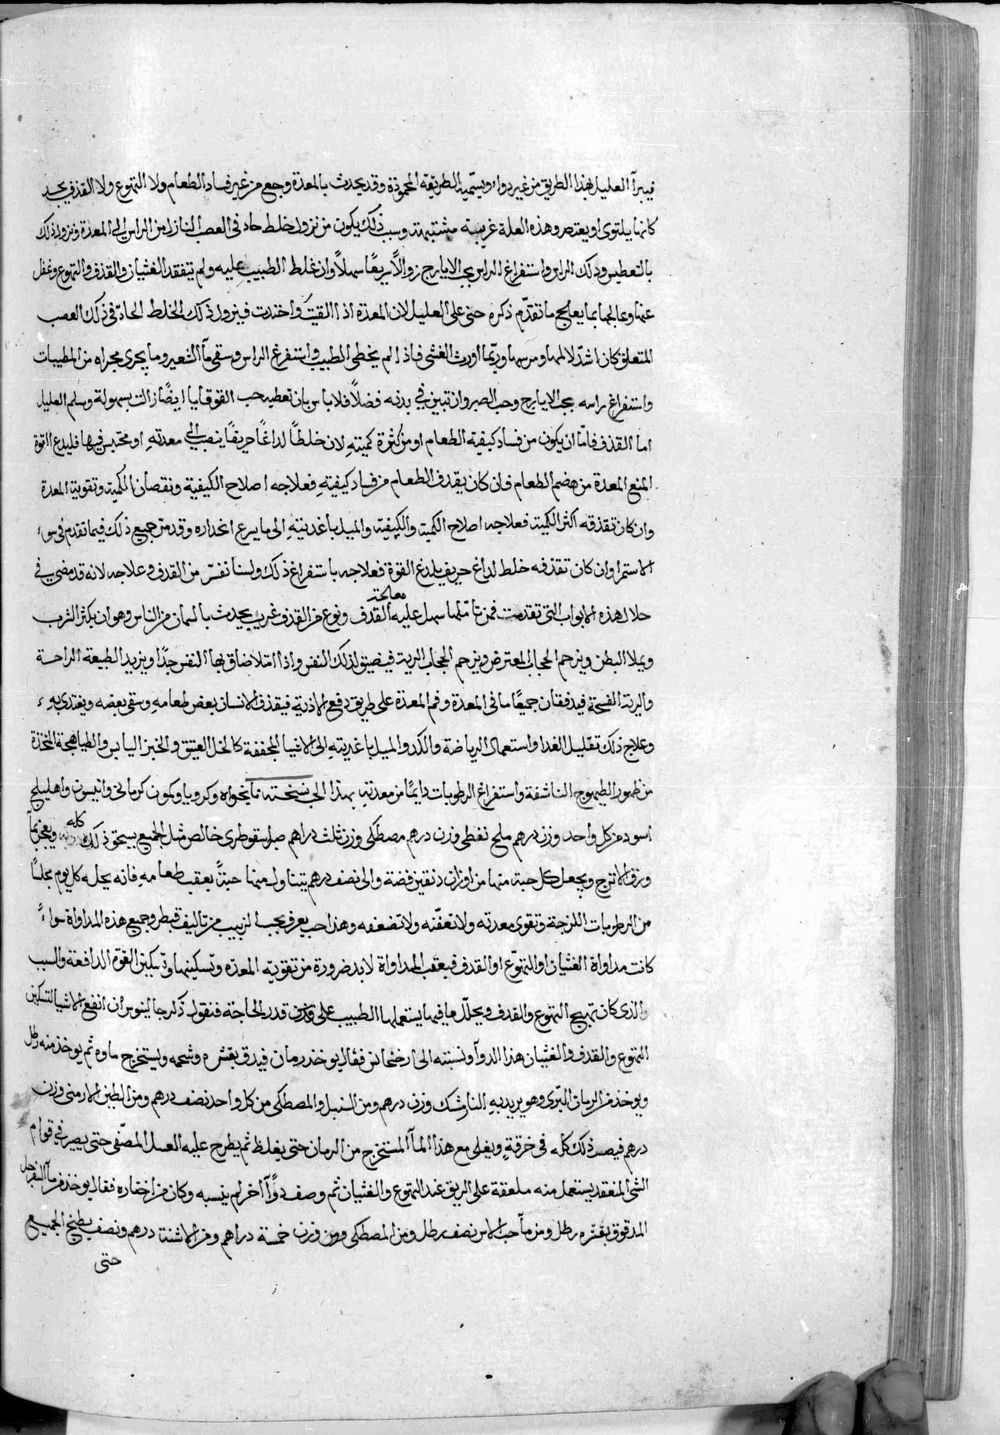 فيبرأ العليل بهذا الطريق من غير دواء ويسميه الطريقة المحمودة وقد يحدث بالمعدة وجع من غير فساد الطعام ولا التهوع ولا القذف يجد
كانها يلتوى او يعتصر وهذه العلة غريبة مشتبهة وسبب ذلك يكون من نزول خلط حاد فى العصب النازل من الراس الى المعدة ويزول ذلك
بالتعطيس ودلك الراس واستفراغ الراس بحب الايارج زوالاً سريعًا سهلاً وان غلط الطبيب عليه ولم يتفقد الغثيان والقذف والتهوع وغفل
عنها وعالجها بما يعالج ما تقدّم ذكره حتى على العليل لان المعدة اذا القيت واخذت فينزول ذلك الخلط الحادّ فى ذلك العصب
المتعلق كان اشدّ لالمها ومرسها وربّما اورث الغشى فاذا لم يخطى الطبيب واستفرغ الراس وسقى مآ الشعير وما يجرى مجراه من المطيبات
واستفراغ راسه بحب الايارج وحب الصبر وان تبين فى بدنه فضلاً فلا باس بان تعطيه حب القوقايا ايضًا زالت بسهولة وسلم العليل
اما القذف فامّا ان يكون من فساد كيفية الطعام او من كثرة كميته لان خلطًا لداغًا حريفًا ينصب الى معدته او محتبس فيها فليدع القوة
المنع المعدة من هضم الطعام فان كان يقذف الطعام من فساد كيفيته فعلاجه اصلاح الكيفية ونقصان الكمية وتقوية المعدة
وان كان تقذفه اكثر الكمية فعلاجه اصلاح الكمية والكيفية والميل باغذيته الى ما يسرع انحداره وقد مرّ جميع ذلك فيما تقدم فى سوء
الاستمرا وان كان تقذفه خلط لداغ حريف يلدغ القوة فعلاجه باستفراغ ذلك ولسنا نفسر من القذف وعلاجه لانه قد مضى فى
خلال هذه الابواب التى تقدمت فمن تاملها سهل عليه معالجة القذف ونوع من القذف غريب يحدث بالسمان من الناس وهو ان يكثر الثرب
ويملا البطن ويزحم الحجاب المعترض ويزحم الحجاب الرية فيضيق لذلك النفس واذا امتلا ضاق بها التنفس جدًا ويزيد الطبيعة الراحة
والرية الفسحة فيدفعان جميعًا ما فى المعدة وفم المعدة على طريق دفع الاذية فيقذف الانسان بعض طعامه وسقى بعضه ويغتدى به
وعلاج ذلك تقليل الغدا واستعمال الرياضة والكد والميل باغذيته الى الاشيا المجففة كالخل العتيق والخبز اليابس والطياهجة المتخذة
من ظهور الطيهوج الناشفة واستفراغ الرطوبات دايمًا من معدته بهذا الحب نسخته نانخواه وكرويا وكمون كرمانى وانيسون واهليلج
اسود من كل واحد وزن درهم ملح نفطى وزن درهم مصطكى وزن ثلث دراهم صبر اسقوطرى خالص مثل الجميع يسحق ذلك كله ويعجن بمآ
ورق الاترج ويجعل كل حبة منها من اوزان دنقين فضة والى نصف درهم يتناول منها حبتًا بعقب طعامه فانه يحلله كل يوم مجلسًا
من الرطوبات اللزجة وتقوى معدته ولا تعفنه ولا تضعفه وهذا حب يعرف بحب الزبيب من تاليف قيطر وجميع هذه المداواة سواءً
كانت مداواة الغثيان او التهوّع او القذف فبعقب المداواة لا بد ضرورة من تقوية المعدة وتسكينها وتسكين القوة الدافعة والسبب
والذى كان تهيج التهوع والقذف ويحلّل ما فيها يستعملها الطبيب على قدر الحاجة فنقول ذكر جالينوس ان انفع الاشيا لتسكين
التهوع والقذف والغثيان هذا الدوآ ونسبته الى ارخيجانس فقال يوخذ رمان فيدق بقشره وشحمه ويستخرج ماوه ثم يوخذ منه رطل
ويوخذ من الرمان البرى وهو يريد به النارمشك وزن درهم ومن السنبل والمصطكى من كل واحد نصف درهم ومن الطين الارمنى وزن
درهم فيصر ذلك كله فى خرقة ويغلى مع هذا المآ المستخرج من الرمان حتى يغلظ ثم يطرح عليه العسل المصفى حتى يصير فى قوام
الشى المنعقد يستعمل منه ملعقة على الريق عند التهوع والغثيان ثم وصف دوآ اخر لم ينسبه وكان من اختياره فقال يوخذ من مآ السفرجل
المدقوق بقشره رطل ومن مآ حب الاس نصف رطل ومن المصطكى وزن خمسة دراهم ومن الاشنة درهم ونصف يطبخ الجميع
حتى